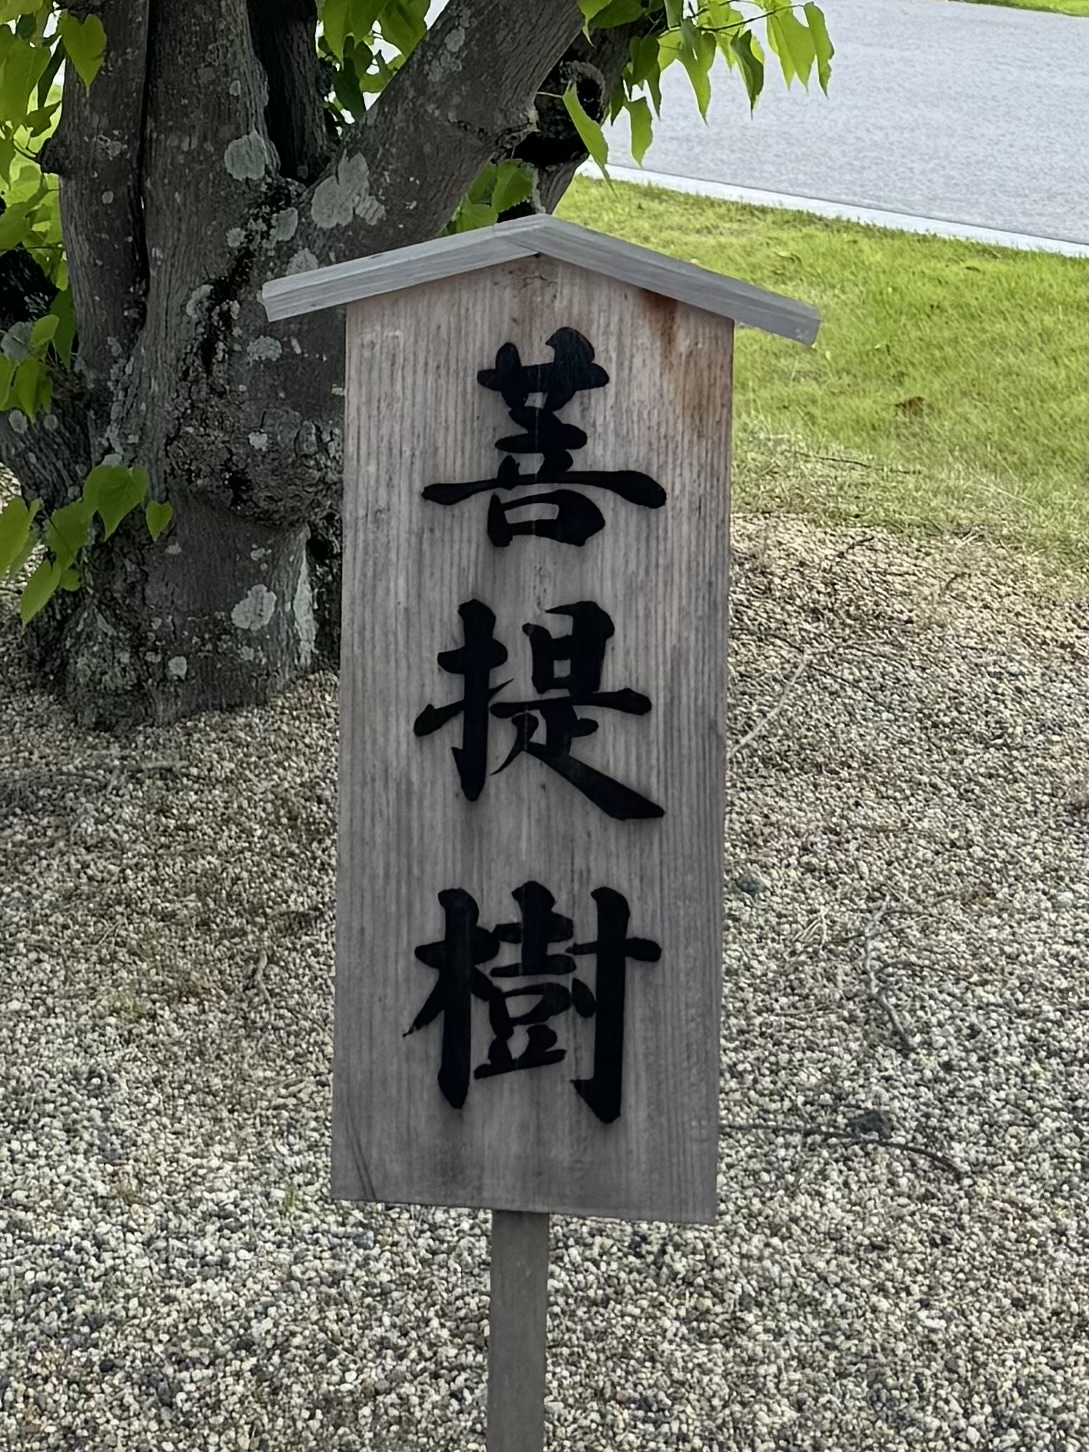 菩提樹